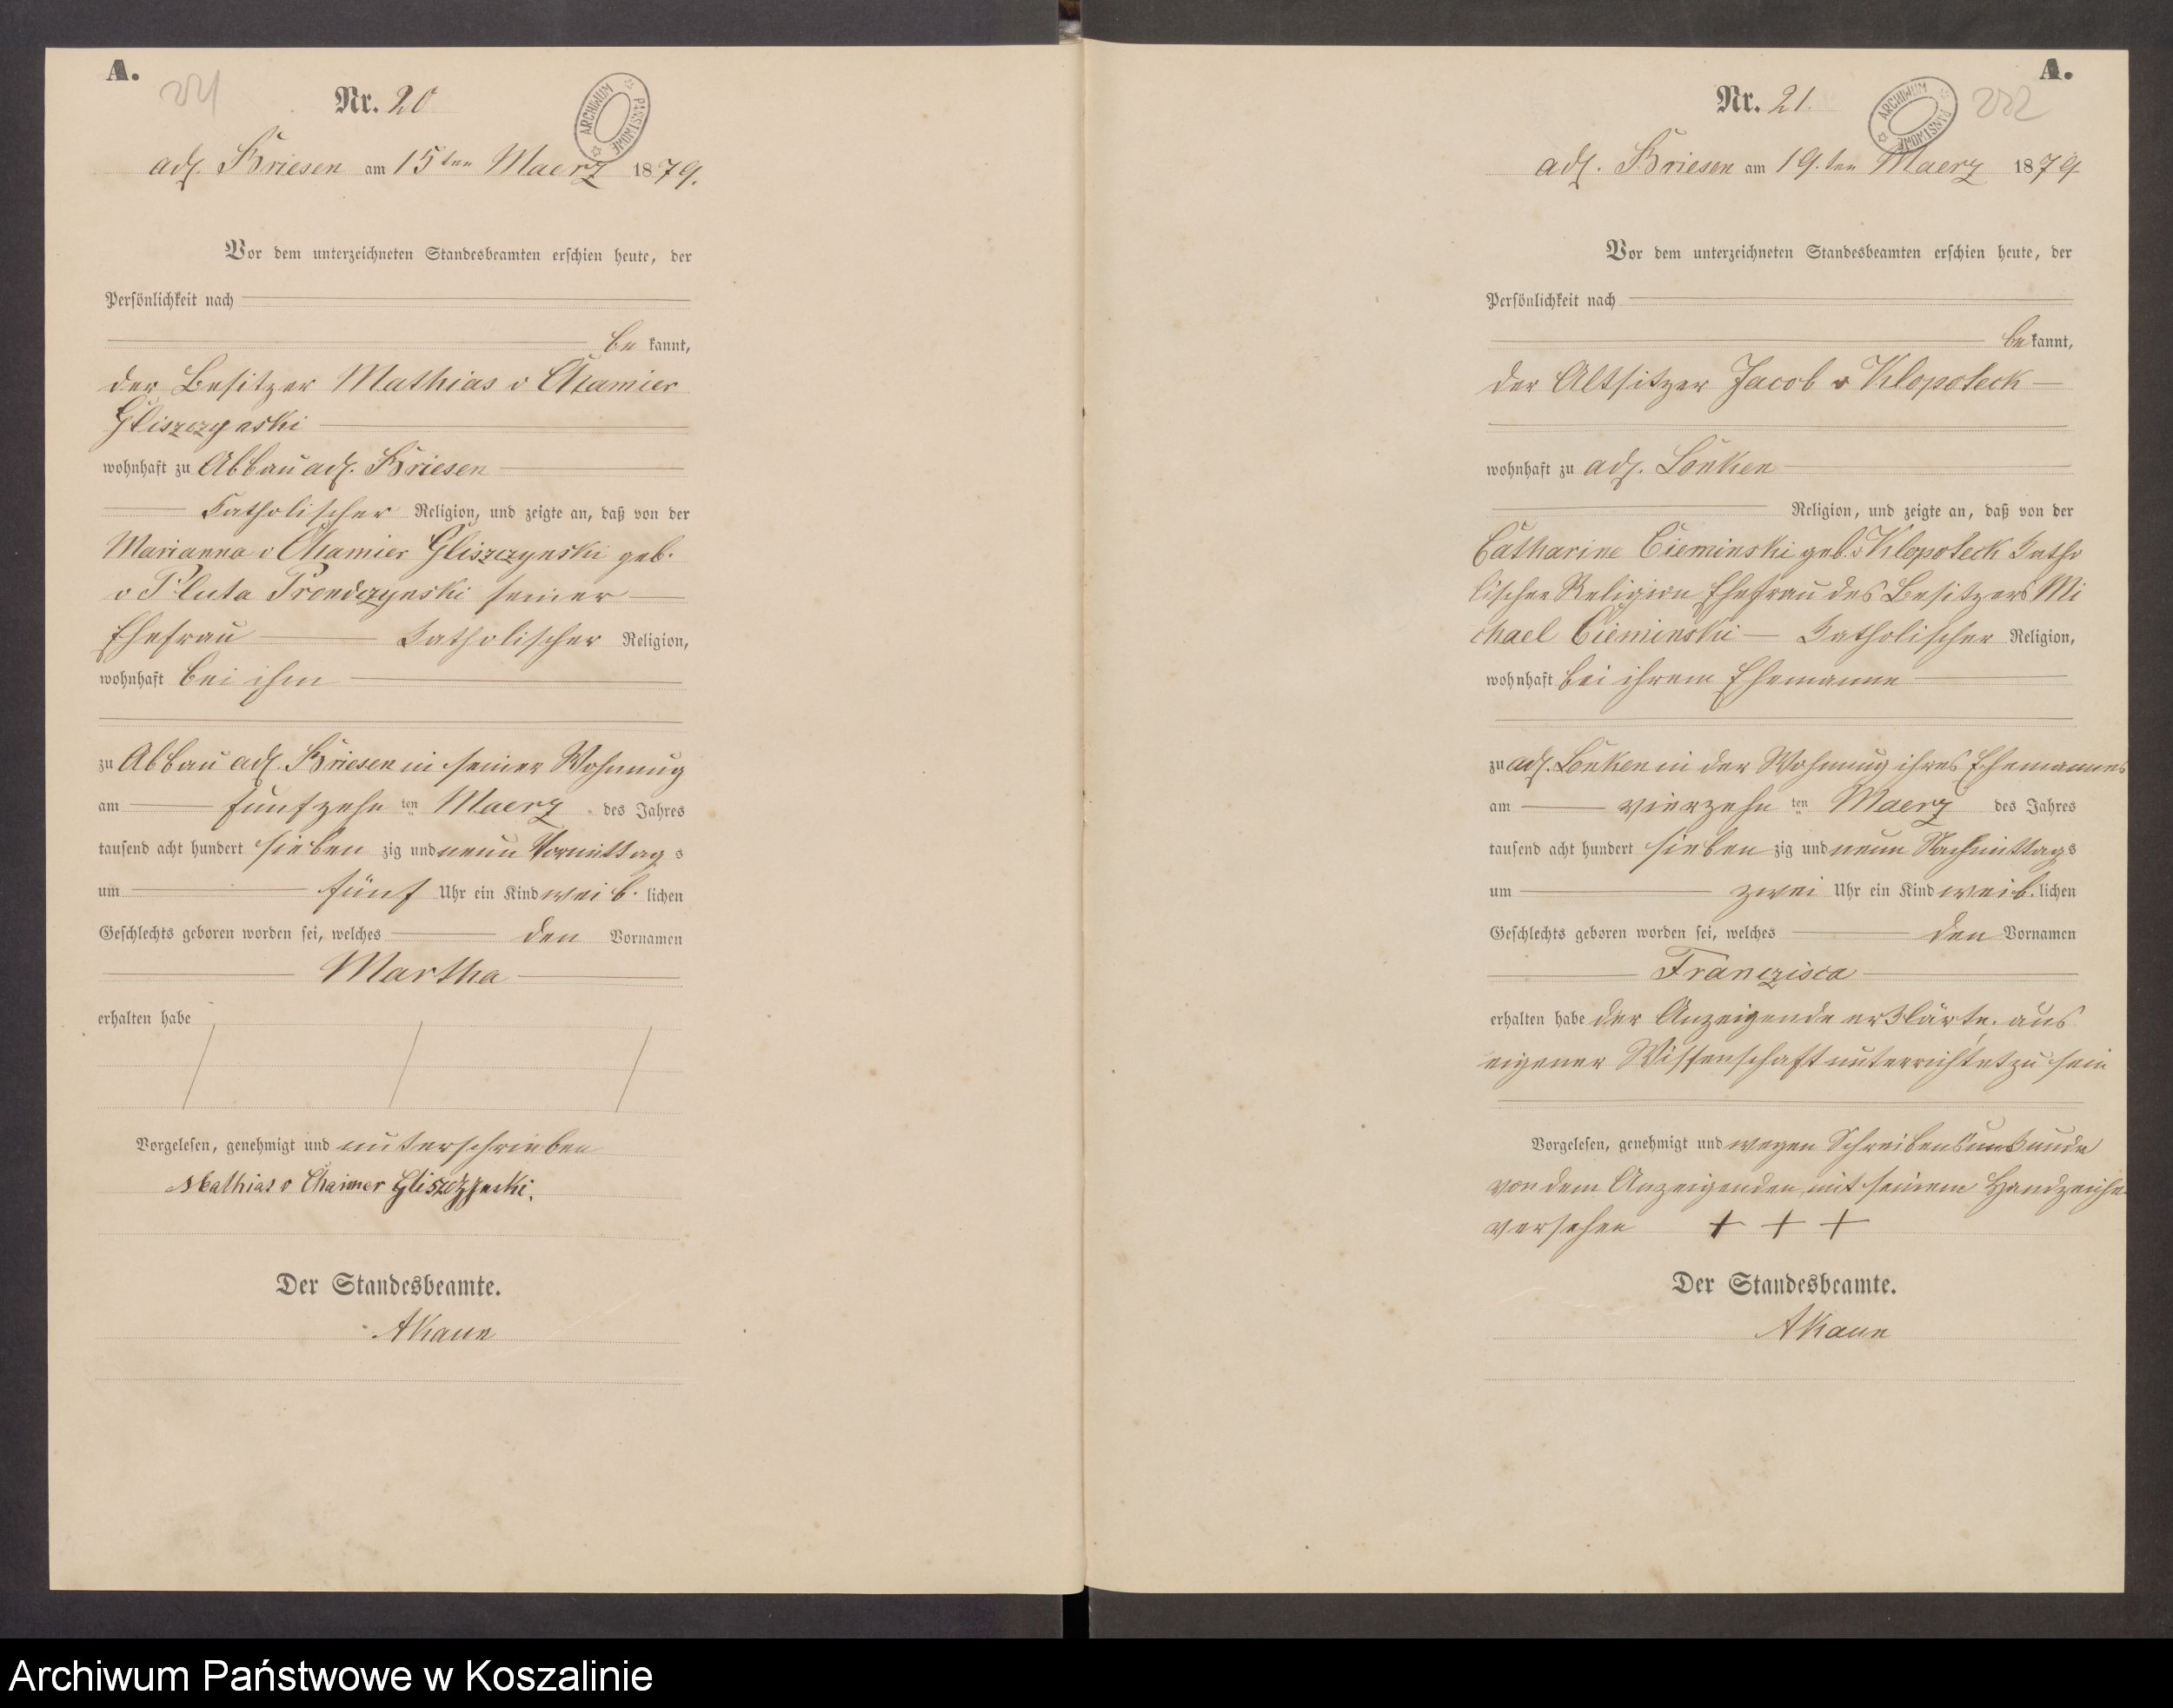 A.
221
Nr. 20
ARCHIWUM PAŃSTWOWE
adl. Briesen am 15ten Maerz 1879.
Vor dem unterzeichneten Standesbeamten erschien heute, der
Persönlichkeit nach
be kannt,
der Besitzer Mathias v Chamier
Gliszczynski
wohnhaft zu Abbau adl. Briesen
Katholischer Religion, und zeigte an, daß von der
Marianna v Chamier Gliszczynski geb.
v Pluta Prondzynski seiner
Ehefrau Katholischer Religion,
wohnhaft bei ihm
zu Abbau adl. Briesen in seiner Wohnung
am fünfzehn ten Maerz des Jahres
tausend acht hundert sieben zig und neun Vormittag s
um fünf Uhr ein Kind weib. lichen
Geschlechts geboren worden sei, welches den Vornamen
Martha
erhalten habe
Vorgelesen, genehmigt und unterschrieben
Mathias v Chamier Gliszczynski.
Der Standesbeamte.
AKaun
A.
222
Nr. 21.
ARCHIWUM PAŃSTWOWE
adl. Briesen am 19.ten Maerz 1879
Vor dem unterzeichneten Standesbeamten erschien heute, der
Persönlichkeit nach
be kannt,
der Altsitzer Jacob v Klopoteck
wohnhaft zu adl. Lonken
Religion, und zeigte an, daß von der
Catharine Cieminski geb. v Klopoteck Katho
lischer Religion Ehefrau des Besitzers Mi
chael Cieminski Katholischer Religion,
wohnhaft bei ihrem Ehemanne
zu adl. Lonken in der Wohnung ihres Ehemannes
am vierzehn ten Maerz des Jahres
tausend acht hundert sieben zig und neun Nachmittags
um zwei Uhr ein Kind weib. lichen
Geschlechts geboren worden sei, welches den Vornamen
Franczisca
erhalten habe der Anzeigende erklärte. aus
eigener Wissenschaft unterrichtet zu sein
Vorgelesen, genehmigt und wegen Schreibensunkunde
von dem Anzeigenden mit seinem Handzeichen
versehen + + +
Der Standesbeamte.
AKaun
Archiwum Państwowe w Koszalinie